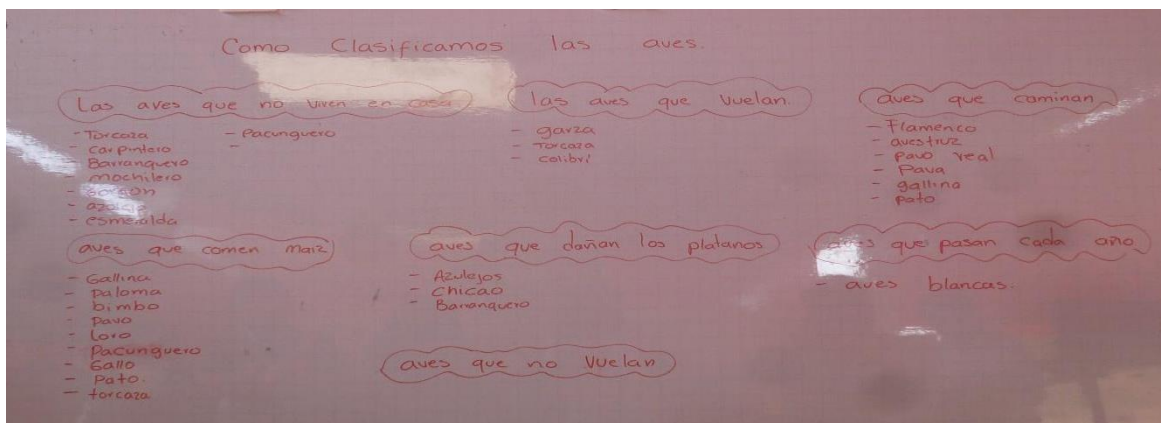 Como Clasificamos las aves.
Las aves que no viven en casa
- Torcaza
- carpintero
- Barranquero
- mochilero
- azulejo
- esmeralda
- Pacunguero
-
las aves que vuelan.
- garza
- Torcaza
- colibrí
aves que caminan
- Flamenco
- avestruz
- pavo real
- Pava
- gallina
- pato
aves que comen maiz
- Gallina
- paloma
- bimbo
- pavo
- Loro
- Pacunguero
- Gallo
- Pato.
- torcaza
aves que dañan los platanos
- Azulejos
- chicao
- Barranquero
aves que pasan cada año
- aves blancas.
aves que no vuelan